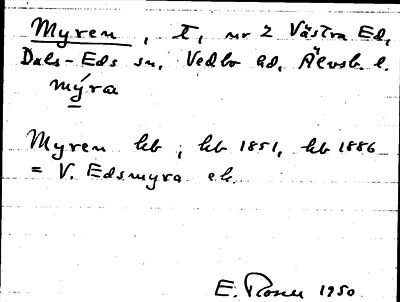 Myren, t, nr 2 Västra Ed,
Dals-Eds sn, Vedbo hd, Älvsb. l.
mýra
Myren kb, kb 1851, kb 1886
= V. Edsmyra ek.
E. Rosell 1950